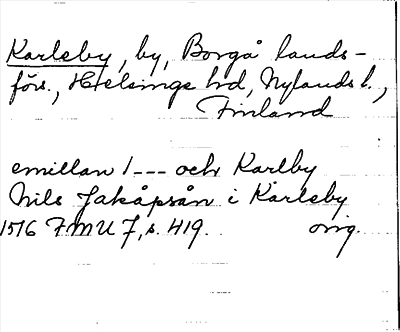 Karlsby, by, Borgå lands-
förs., Helsinge hd, Nylands l.,
Finland
emillan 1 --- och Karlby
Nils Jakåpsån i Karlsby
1516 FMU 7, s. 419. orig.